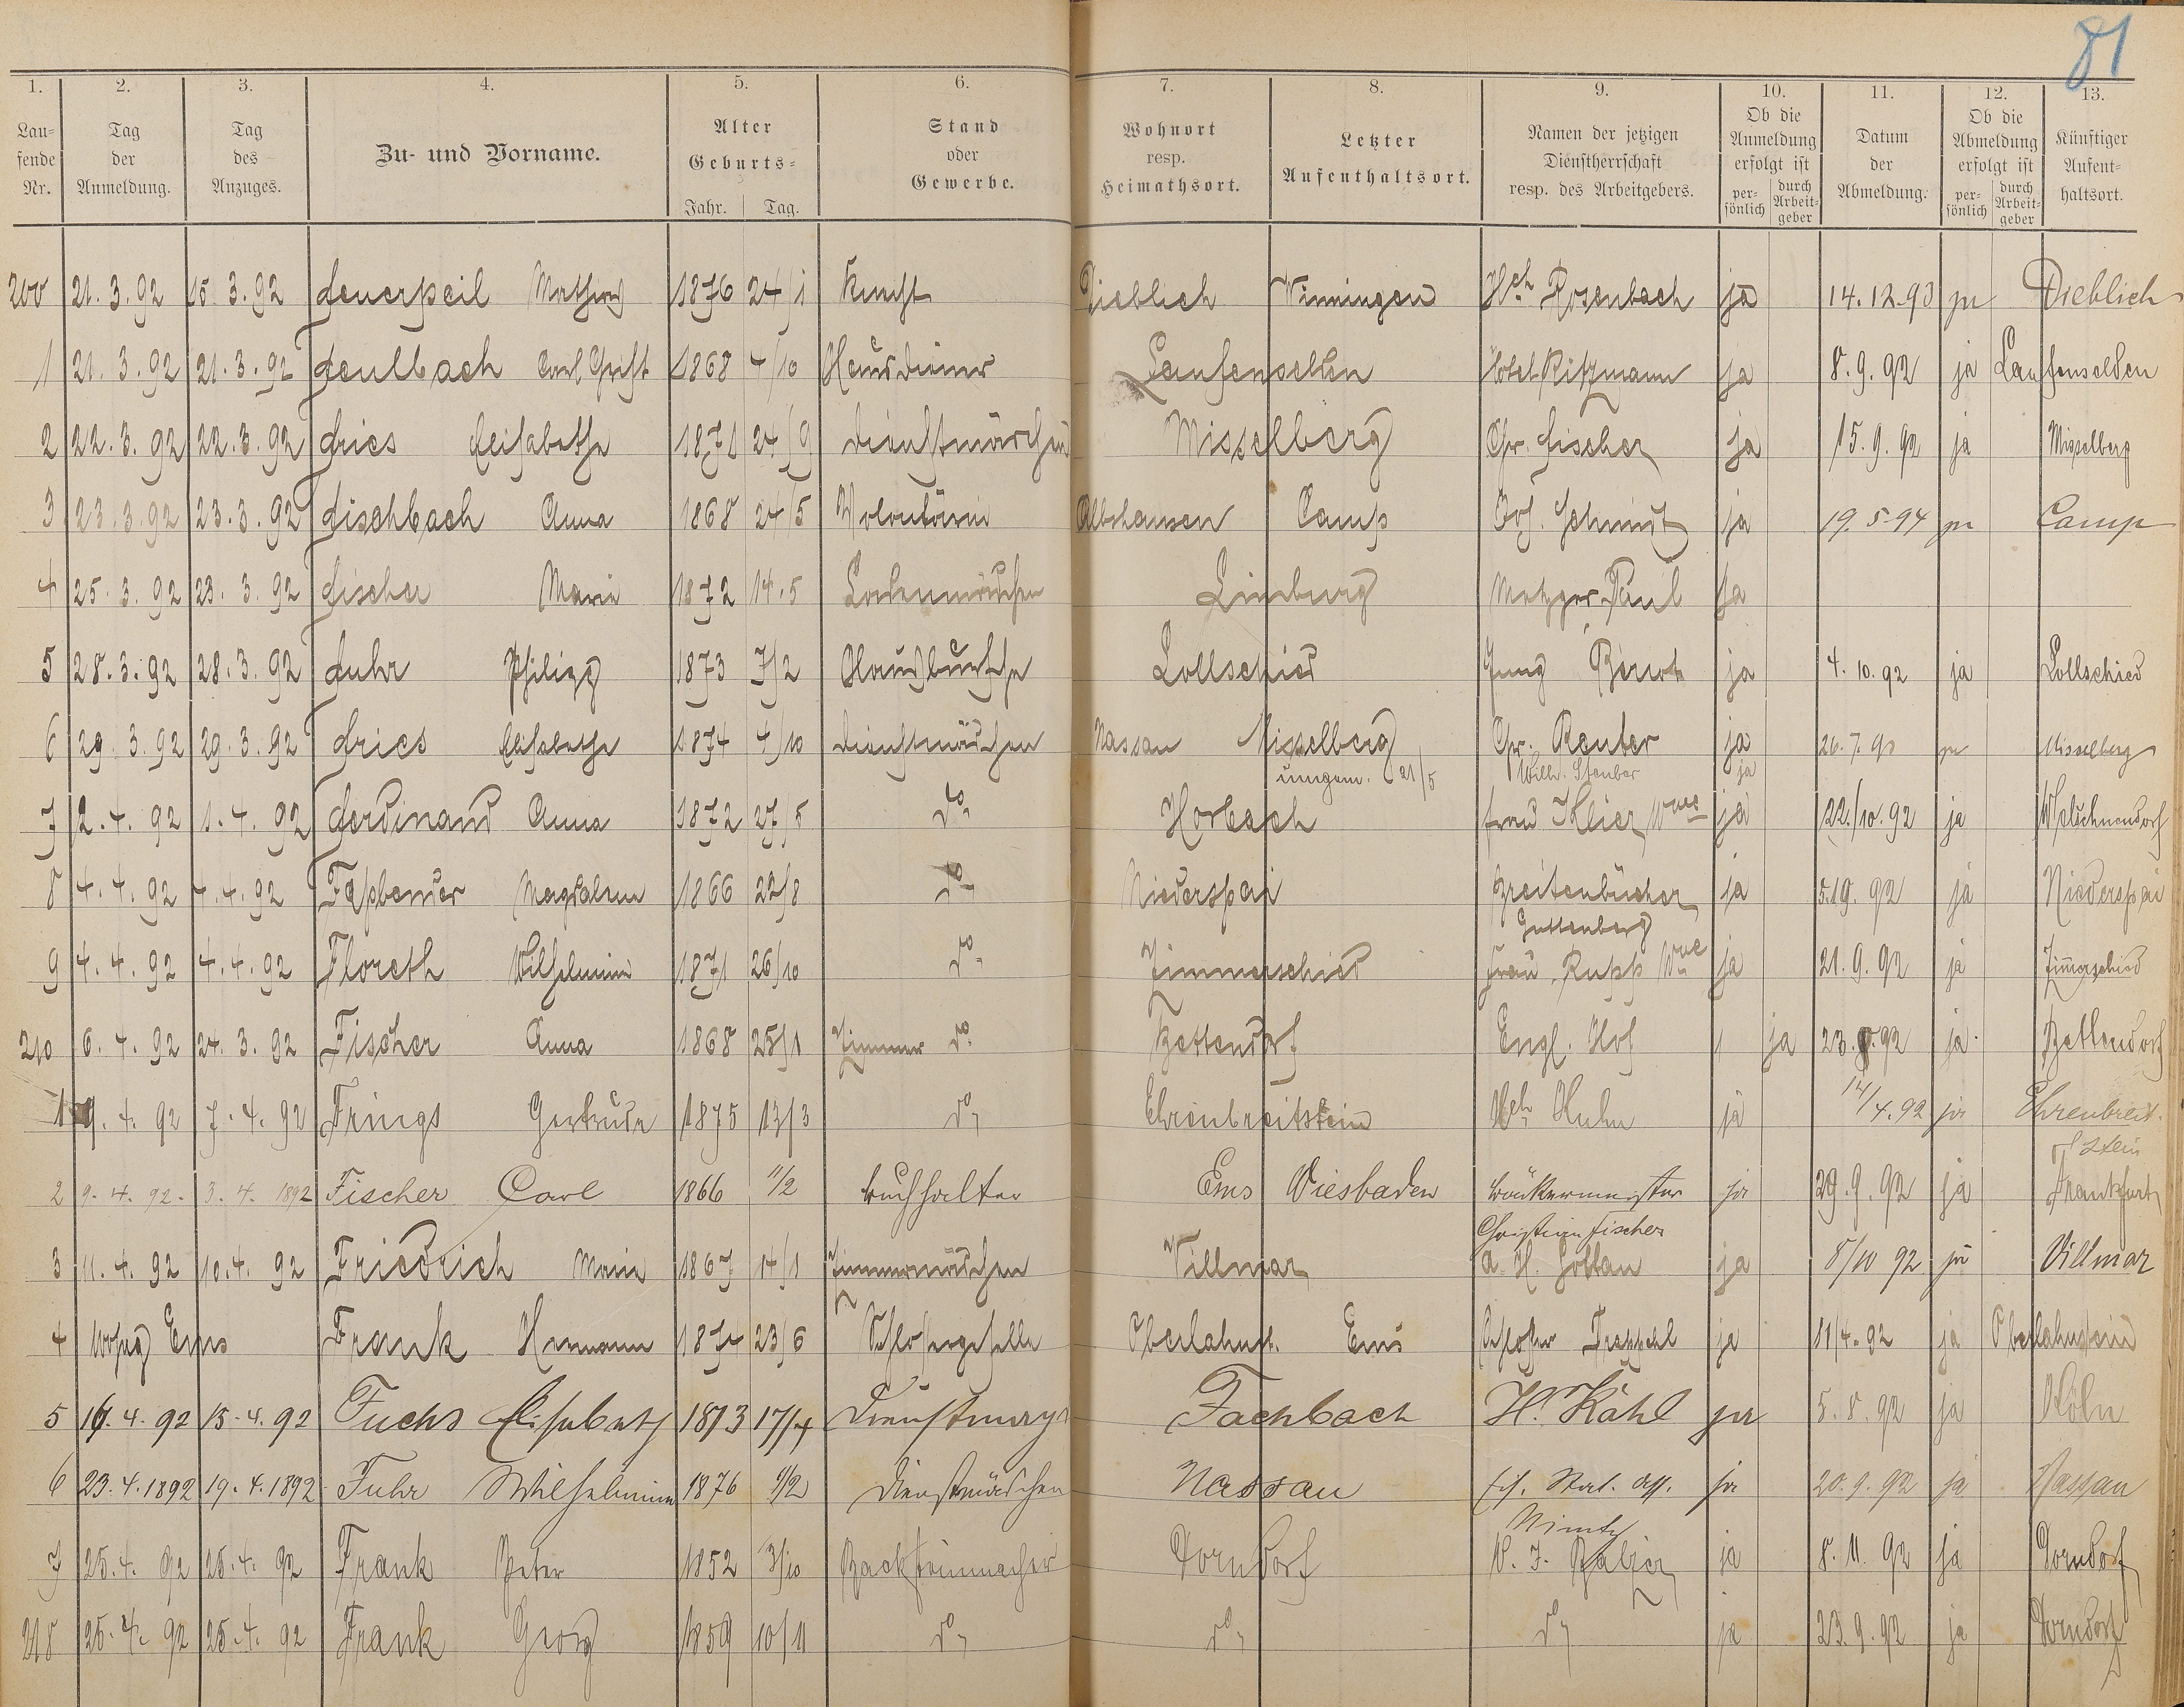 81
1. 2. 3. 4. 5. 6. 7. 8. 9. 10. 11. 12. 13.
Lau-
fende
Nr.
Tag
der
Anmeldung.
Tag
des
Anzuges.
Zu- und Vorname.
Alter
Geburts-
Jahr. Tag.
Stand
oder
Gewerbe.
Wohnort
resp.
Heimathsort.
Letzter
Aufenthaltsort.
Namen der jetzigen
Dienstherrschaft
resp. des Arbeitgebers.
Ob die
Anmeldung
erfolgt ist
per-
sönlich
durch
Arbeit-
geber
Datum
der
Abmeldung.
Ob die
Abmeldung
erfolgt ist
per-
sönlich
durch
Arbeit-
geber
Künftiger
Aufent-
haltsort.
200 21.3.92 15.3.92 Feuerpeil 1876 24/1 Knecht Dieblich Winningen Hch Rosenbach ja 14.12.93 ja Dieblich
1 21.3.92 21.3.92 Feulbach Carl Christ 1868 4/10 Hausdiener Laufenselden Hotel Ritzmann ja 8.9.92 ja Laufenselden
2 22.3.92 22.3.92 Fries Elisabethe 1871 24/9 Dienstmädchen Misselberg Chr. Fischer ja 15.9.92 ja Misselberg
3 23.3.92 23.3.92 Fischbach Anna 1868 24/5 Volontärin Albshausen Camp Schmidt ja 19.5.94 ja Camp
4 25.3.92 23.3.92 Fischer Marie 1872 14.5 Ladenmädchen Limburg Metzger Paul ja
5 28.3.92 28.3.92 Fuhr Philipp 1873 7/2 Hausbursche Lollschied Jung ja 4.10.92 ja Lollschied
6 29.3.92 29.3.92 Fries Elisabethe 1874 4/10 Dienstmädchen Nassau Misselberg Chr. Reuter ja 26.7.9 ja Misselberg
umgem. 21/5 Wilh. Stauber ja
7 2.4.92 1.4.92 Ferdinand Anna 1872 27/5 do Horbach Frau Wwe ja 22./10.92 ja Welschneudorf
8 4.4.92 4.4.92 Faßbender Magdalene 1866 22/8 do Niederspai Breitenbücher ja 5.10.92 ja Niederspai
Guttenberg
9 4.4.92 4.4.92 Floreth Wilhelmine 1871 26/10 do Zimmerschied Frau Rupp Wwe ja 21.9.92 ja Zimmerschied
210 6.4.92 24.3.92 Fischer Anna 1868 25/1 Zimmer do Bettendorf Engl. Hof ja 23.9.92 ja Bettendorf
1 9.4.92 7.4.92 Frings Gertrude 1875 13/3 do Ehrenbreitstein Hch Huhn ja 14/4.92 ja Ehrenbreit-
stein
2 9.4.92. 3.4.1892 Fischer Carl 1866 11/2 Buchhalter Ems Wiesbaden Bäckermeister ja 29.9.92 ja Frankfurt
Christian Fischer
3 11.4.92 10.4.92 Friedrich Marie 1867 14/1 Zimmermädchen Villmar A. H. ja 8/10 92 ja Villmar
4 Ems Frank Hermann 1874 23/6 Schlossergeselle Oberlahnst. Ems Schlosser ja 11/4.92 ja Oberlahnstein
5 16.4.92 15.4.92 Fuchs Elisabeth 1873 17/4 Dienstmagd Fachbach H. Kahl ja 5.8.92 ja Köln
6 23.4.1892 19.4.1892 Fuhr Wilhelmine 1876 Dienstmädchen Nassau ja 20.9.92 ja Nassau
7 25.4.92 25.4.92 Frank Peter 1852 3/10 Backsteinmacher Dorndorf W. J. Balzer ja 8.11.92 ja Dorndorf
218 25.4.92 25.4.92 Frank Georg 1859 10/11 do do do ja 23.9.92 ja Dorndorf